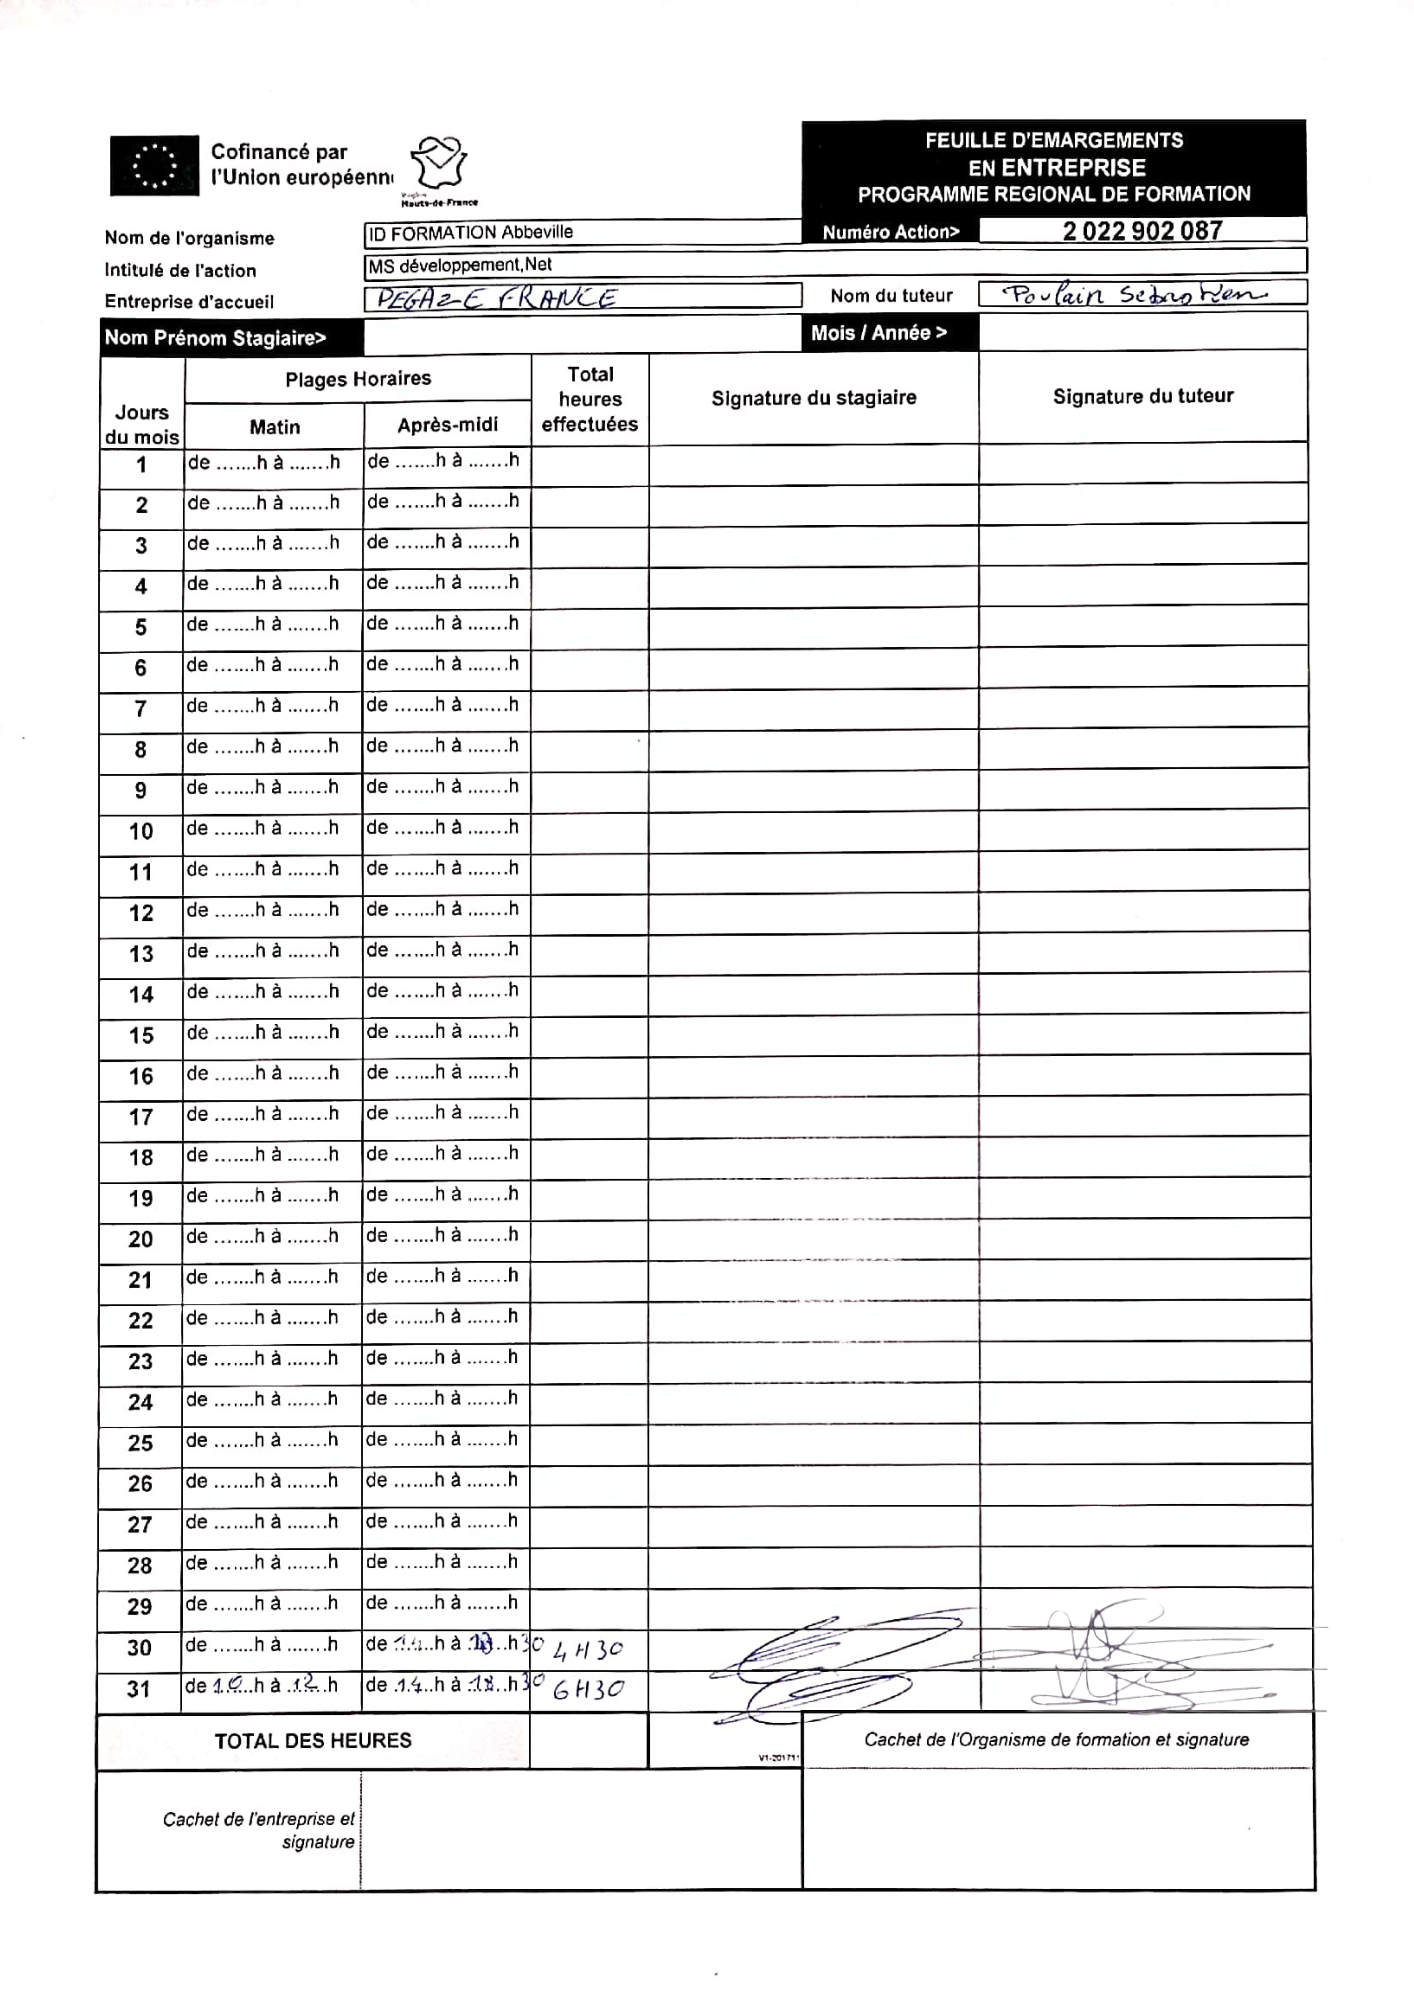 Cofinancé par
l'Union européenn
Hauts-de-France
FEUILLE D'EMARGEMENTS
EN ENTREPRISE
PROGRAMME REGIONAL DE FORMATION
Nom de l'organisme ID FORMATION Abbeville Numéro Action> 2 022 902 087
Intitulé de l'action MS développement,Net
Entreprise d'accueil PEGAZE FRANCE Nom du tuteur Poulain Sébastien
Nom Prénom Stagiaire> Mois / Année >
Jours du mois Plages Horaires Total heures effectuées Signature du stagiaire Signature du tuteur
Matin Après-midi
1 de .......h à .......h de .......h à .......h
2 de .......h à .......h de .......h à .......h
3 de .......h à .......h de .......h à .......h
4 de .......h à .......h de .......h à .......h
5 de .......h à .......h de .......h à .......h
6 de .......h à .......h de .......h à .......h
7 de .......h à .......h de .......h à .......h
8 de .......h à .......h de .......h à .......h
9 de .......h à .......h de .......h à .......h
10 de .......h à .......h de .......h à .......h
11 de .......h à .......h de .......h à .......h
12 de .......h à .......h de .......h à .......h
13 de .......h à .......h de .......h à .......h
14 de .......h à .......h de .......h à .......h
15 de .......h à .......h de .......h à .......h
16 de .......h à .......h de .......h à .......h
17 de .......h à .......h de .......h à .......h
18 de .......h à .......h de .......h à .......h
19 de .......h à .......h de .......h à .......h
20 de .......h à .......h de .......h à .......h
21 de .......h à .......h de .......h à .......h
22 de .......h à .......h de .......h à .......h
23 de .......h à .......h de .......h à .......h
24 de .......h à .......h de .......h à .......h
25 de .......h à .......h de .......h à .......h
26 de .......h à .......h de .......h à .......h
27 de .......h à .......h de .......h à .......h
28 de .......h à .......h de .......h à .......h
29 de .......h à .......h de .......h à .......h
30 de .......h à .......h de 14 h à 18 h 30 4H30
31 de 10 h à 12 h de 14 h à 18 h 30 6H30
TOTAL DES HEURES
V1-201711
Cachet de l'Organisme de formation et signature
Cachet de l'entreprise et
signature